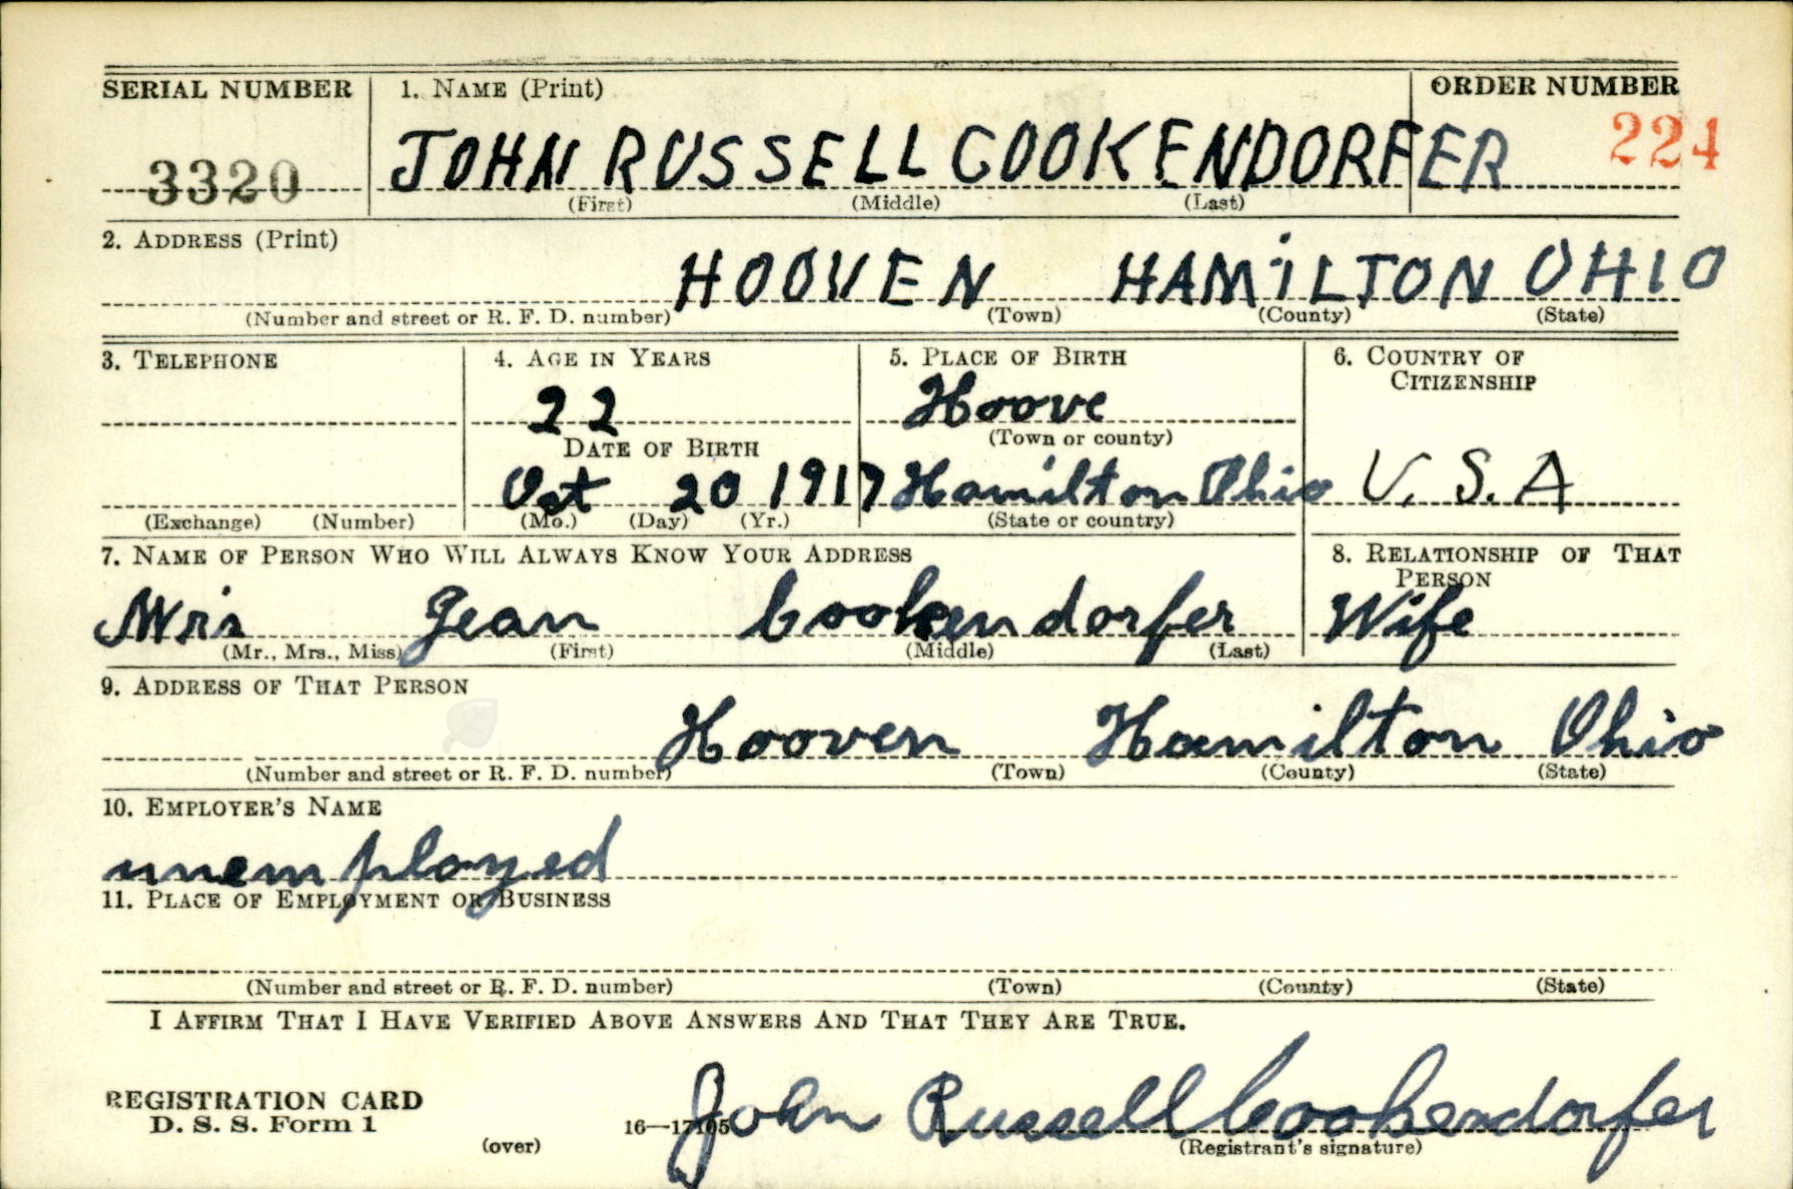 SERIAL NUMBER 1. NAME (Print) ORDER NUMBER
3320 JOHN RUSSELL COOKENDORFER 224
(First) (Middle) (Last)
2. ADDRESS (Print)
HOOVEN HAMILTON OHIO
(Number and street or R. F. D. number) (Town) (County) (State)
3. TELEPHONE 4. AGE IN YEARS 5. PLACE OF BIRTH 6. COUNTRY OF CITIZENSHIP
22 Hoove
DATE OF BIRTH (Town or county)
Oct 20 1917 Hamilton Ohio U. S. A
(Exchange) (Number) (Mo.) (Day) (Yr.) (State or country)
7. NAME OF PERSON WHO WILL ALWAYS KNOW YOUR ADDRESS 8. RELATIONSHIP OF THAT PERSON
Mrs Jean Cookendorfer Wife
(Mr., Mrs., Miss) (First) (Middle) (Last)
9. ADDRESS OF THAT PERSON
Hooven Hamilton Ohio
(Number and street or R. F. D. number) (Town) (County) (State)
10. EMPLOYER'S NAME
unemployed
11. PLACE OF EMPLOYMENT OR BUSINESS
(Number and street or R. F. D. number) (Town) (County) (State)
I AFFIRM THAT I HAVE VERIFIED ABOVE ANSWERS AND THAT THEY ARE TRUE.
REGISTRATION CARD
D. S. S. Form 1 16—17105 John Russell Cookendorfer
(over) (Registrant's signature)